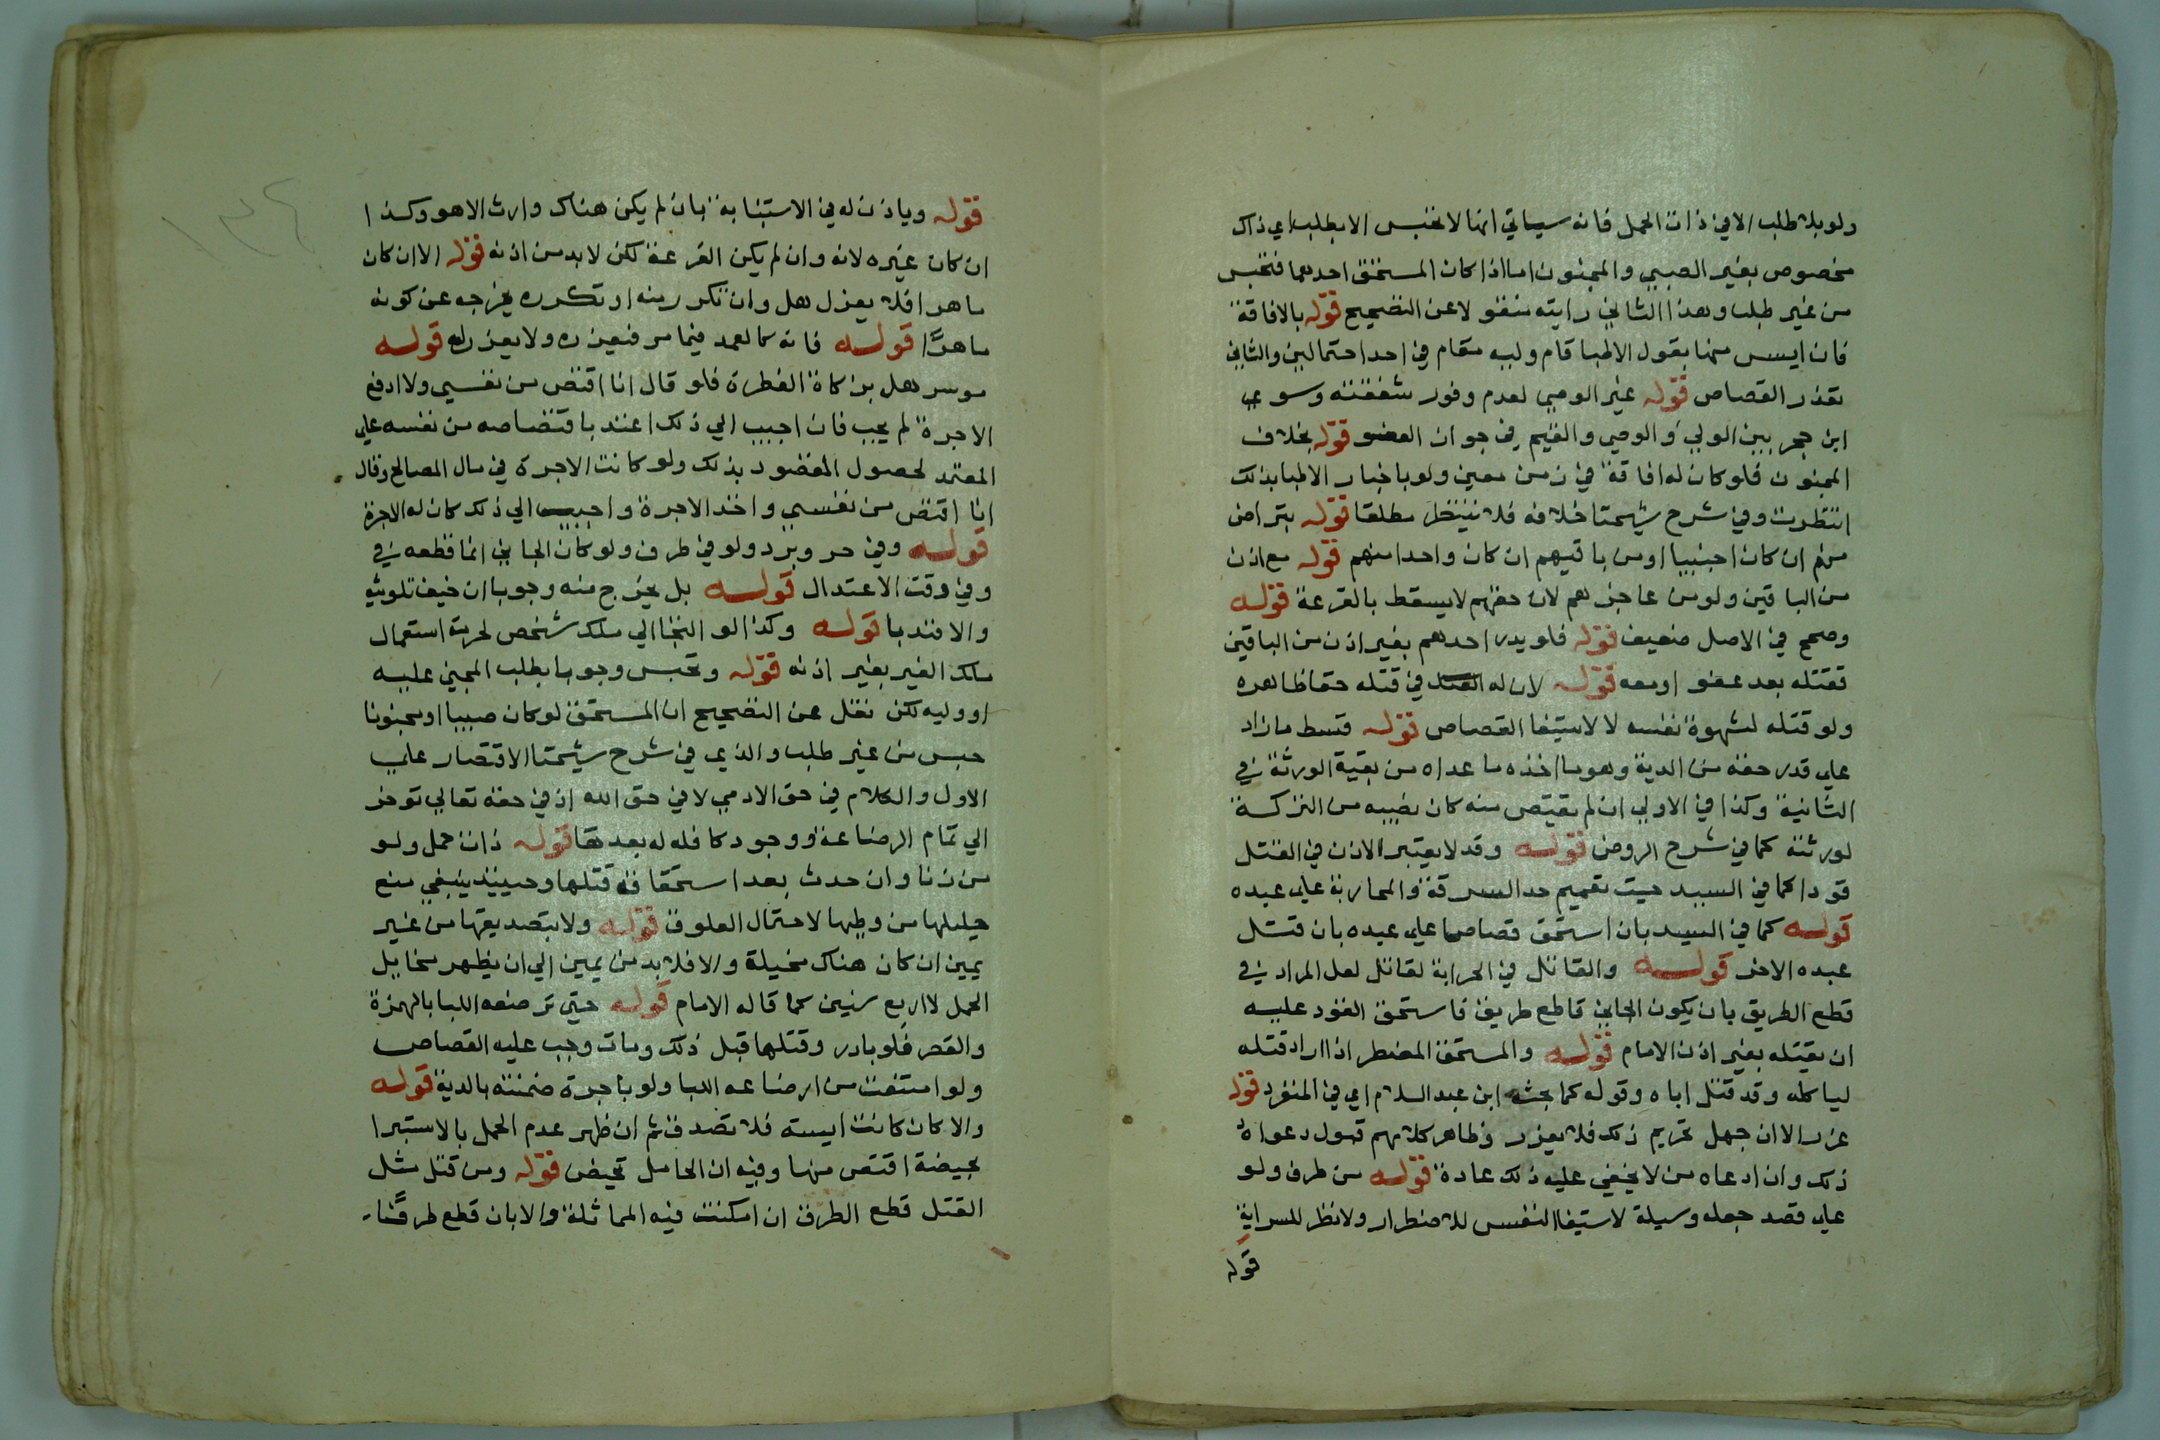 ولو بلا طلب الا في ذات الحمل فانه سياتي انها لا تحبس الا بطلب اي ذاك
مخصوص بغير الصبي والمجنون اما اذا كان المستحق احدهما فتحبس
من غير طلب وهذا الثاني رايته منقولا عن التصحيح قوله بالافاقة
فان ايس منها بقول الاطبا قام وليه مقام في احد احتمالين والثاني
تعذر القصاص قوله غير الوصي لعدم وفور شفقته وسوى
ابن حجر بين الولي والوصي والقيم في جواز العفو قوله بخلاف
المجنون فلو كان له افاقة في زمن معين ولو باخبار الاطبا بذلك
انتظرت وفي شرح شيخنا خلافه فلا ينتظر مطلقا قوله بتراض
منهم ان كان اجنبيا او من باقيهم ان كان واحدا منهم قوله مع اذن
من الباقين ولو من عاجزهم لان حقهم لا يسقط بالقرعة قوله
وصحح في الاصل ضعيف قوله فلو بدر احدهم بغير اذن من الباقين
فقتله بعد عفو او معه قوله لان له القتل في قتله حقا ظاهره
ولو قتله لشهوة نفسه لا لاستيفا القصاص قوله قسط ما زاد
على قدر حقه من الدية وهو ما اخذه ما عداه من بقية الورثة في
الثانية وكذا في الاولى ان لم يقتص منه كان نصيبه من التركة
لورثته كما في شرح الروض قوله وقد لا يعتبر الاذن في القتل
قودا كما في السيد حيث تعميم حد السرقة والمحاربة على عبده
قوله كما في السيد بان استحق قصاصا على عبده بان قتل
عبده الاخر قوله والقاتل في الحرابة لقاتل لعل المراد في
قطع الطريق بان يكون الجاني قاطع طريق فاستحق القود عليه
ان يقتله بغير اذن الامام قوله والمستحق المضطر اذا اراد قتله
لياكله وقد قتل اباه وقوله كما بحثه ابن عبد السلام اي في المنفرد قوله
عزر الا ان جهل تحريم ذلك فلا يعزر وظاهر كلامهم قبول دعواه
ذلك وان ادعاه من لا يخفى عليه ذلك عادة قوله من طرف ولو
على قصد جعله وسيلة لاستيفا النفس للاضطرار ولا نظر للسراية
قوله
قوله وياذن له في الاستنابة بان لم يكن هناك وارث الا هو وكذا
ان كان غيره لانه وان لم يكن القرعة لكن لا بد من اذنه قوله الا ان كان
ماهرا فلا يعزل هل وان تكرر منه او تكرره يخرجه عن كونه
ماهرًا قوله فانه كالعمد فيما مر فتعزره ولا يعزله قوله
موسر هل بزكاة الفطرة فلو قال انا اقتص من نفسي ولا ادفع
الاجرة لم يجب فان اجيب الى ذلك اعتد باقتصاصه من نفسه على
المعتمد لحصول المقصود بذلك ولو كانت الاجرة في مال المصالح وقال
انا اقتص من نفسي واخذ الاجرة واجيب الى ذلك كان له الاجرة
قوله وفي حر وبرد ولو في طرف ولو كان الجاني انما قطعه في
وفي وقت الاعتدال قوله بل يخرج منه وجوبا ان خيف تلويثه
والا فندبا قوله وكذا لو التجا الى ملك شخص لحرمة استعمال
ملك الغير بغير اذنه قوله وتحبس وجوبا بطلب المجني عليه
او وليه لكن نقل عن التصحيح ان المستحق لو كان صبيا او مجنونا
حبس من غير طلب والذي في شرح شيخنا الاقتصار على
الاول والكلام في حق الادمي لا في حق الله اذ في حقه تعالى تؤخر
الى تمام الرضاعة ووجود كافله له بعدها قوله ذات حمل ولو
من زنا وان حدث بعد استحقاق قتلها وحينئذ ينبغي منع
حليلها من وطيها لاحتمال العلوق قوله ولا بتصديقها من غير
يمين ان كان هناك مخيلة والا فلا بد من يمين الى ان يظهر مخايل
الحمل لا اربع سنين كما قاله الامام قوله حتى ترضعه اللبا بالهمزة
والقصر فلو بادر وقتلها قبل ذلك ومات وجب عليه القصاص
ولو امتنعت من ارضاعه اللبا ولو باجرة ضمنته بالدية قوله
والا كان كانت ايسة فلا تصدق ثم ان ظهر عدم الحمل بالاستبرا
بحيضة اقتص منها وفيه ان الحامل تحيض قوله ومن قتل مثل
القتل قطع الطرف ان امكنت فيه المماثلة والا بان قطع طرفًا
١٣٤